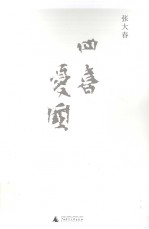 张大春
四喜
憂國